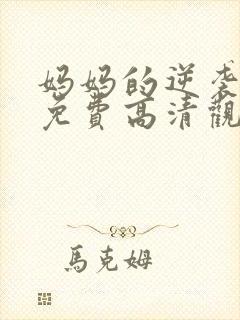 妈妈的逆袭
免費高清觀
馬克姆